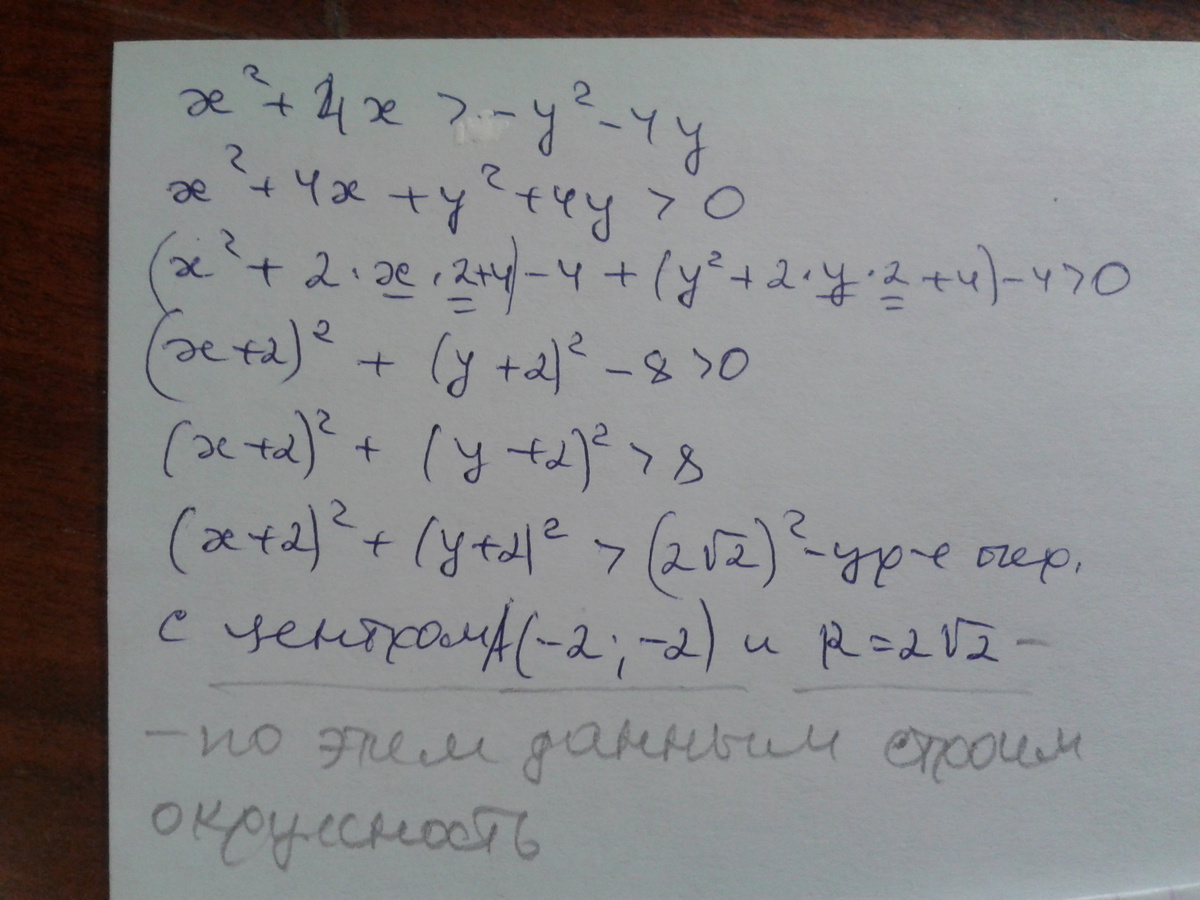 x² + 4x > -y² - 4y
x² + 4x + y² + 4y > 0
(x² + 2·x·2+4) - 4 + (y² + 2·y·2 + 4) - 4 > 0
(x+2)² + (y+2)² - 8 > 0
(x+2)² + (y+2)² > 8
(x+2)² + (y+2)² > (2√2)² - ур-е окр.
с центром A(-2; -2) и R = 2√2 -
- по этем данным строим
окружность